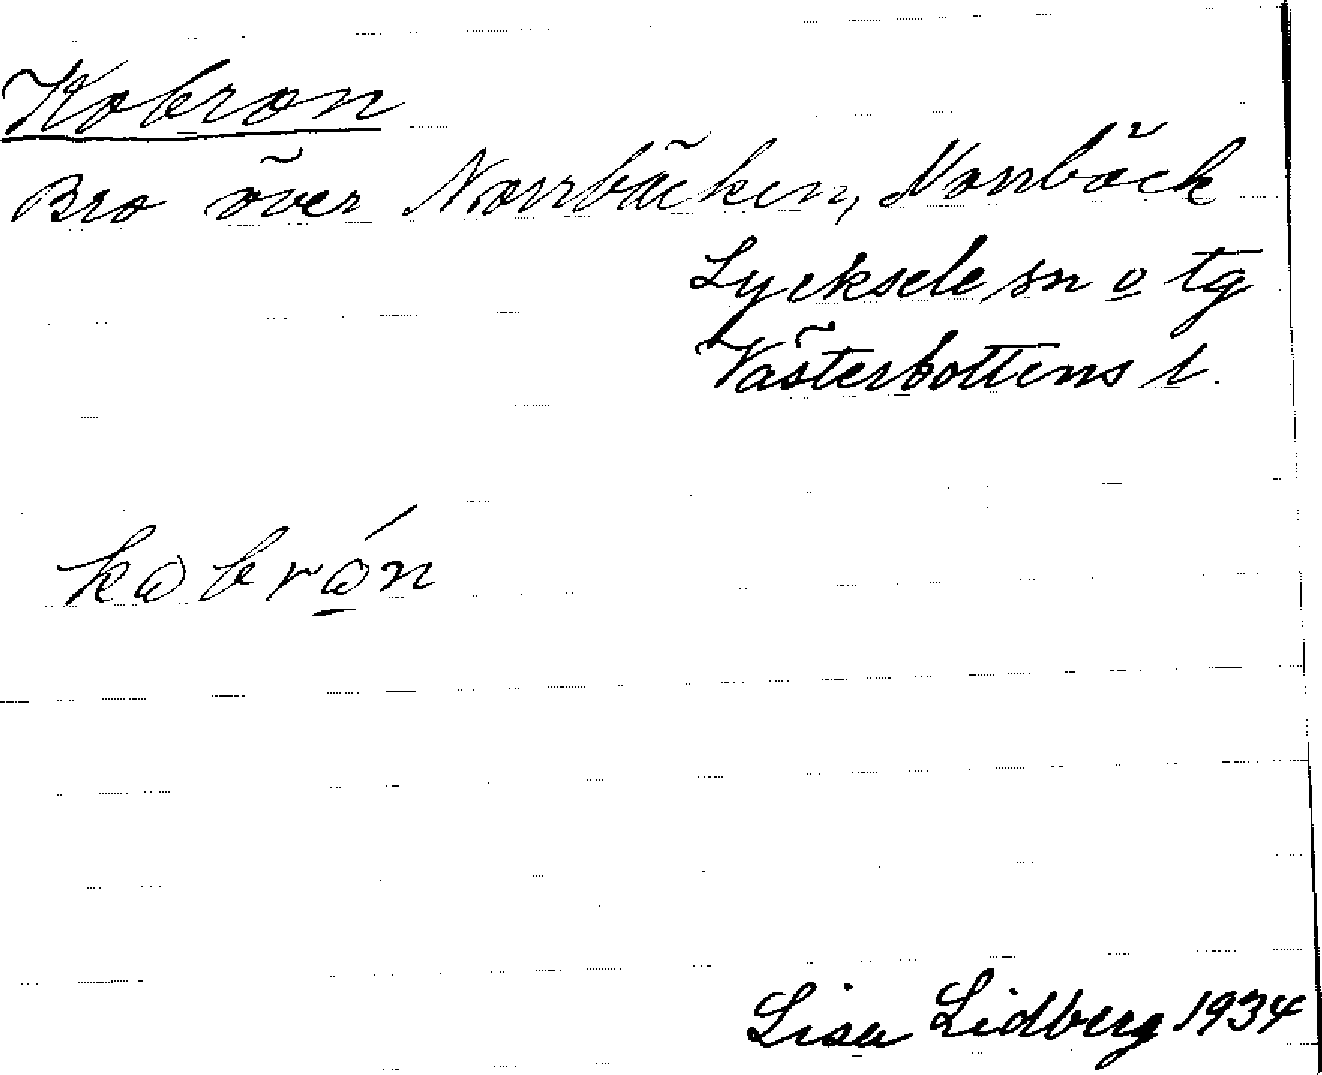 Kobron
Bro över Norrbäcken, Norrbäck
Lycksele sn o tg
Västerbottens l.
kobrón
Lisa Lidberg 1934